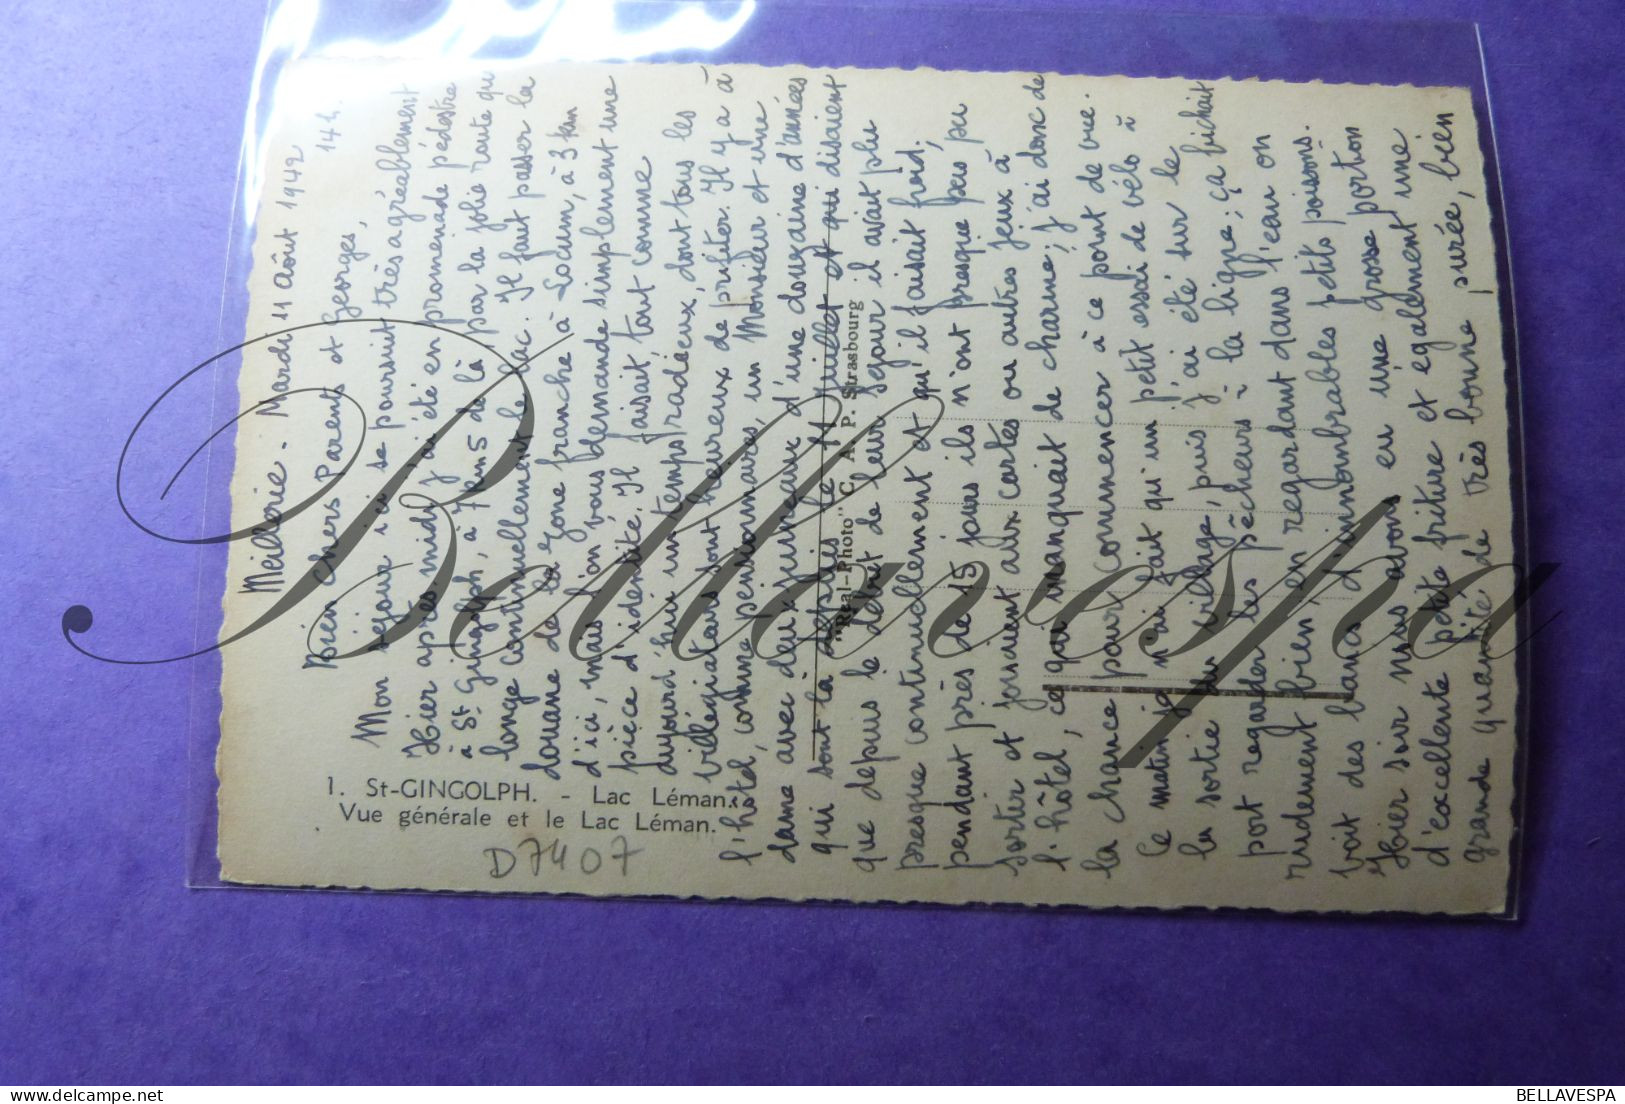 Meillerie - Mardi 11 Août 1942
14 h.
Bien chers Parents et Georges,
Mon séjour ici se poursuit très agréablement
Hier après midi j'ai été en promenade pédestre
à St. Gingolph, à 7 km5 de là par la jolie route qui
longe continuellement le lac. Il faut passer la
douane de la zone franche à Locum, à 3 km
d'ici, mais l'on vous demande simplement une
pièce d'identité. Il faisait tout comme
aujourd'hui un temps radieux, dont tous les
villégiateurs sont heureux de profiter. Il y a à
l'hôtel, comme pensionnaires, un Monsieur et une
dame avec deux jumeaux d'une douzaine d'années
qui sont là depuis le 11 juillet et qui disaient
que depuis le début de leur séjour il avait plu
presque continuellement et qu'il faisait froid,
pendant près de 15 jours ils n'ont presque pas pu
sortir et jouaient aux cartes ou autres jeux à
l'hôtel, ce qui manquait de charme; j'ai donc de
la chance pour commencer à ce point de vue.
Ce matin je n'ai fait qu'un petit essai de vélo à
la sortie du village, puis j'ai été sur le
port regarder les pêcheurs à la ligne; ça bichait
rudement bien, en regardant dans l'eau on
voit des bancs d'innombrables petits poissons.
Hier soir nous avons eu une grosse portion
d'excellente petite friture et également une
grande quantité de très bonne purée, bien
1. St-GINGOLPH. - Lac Léman.
Vue générale et le Lac Léman.
D7407
"Real-Photo" C. A. P. Strasbourg
Bellavespa
BELLAVESPA